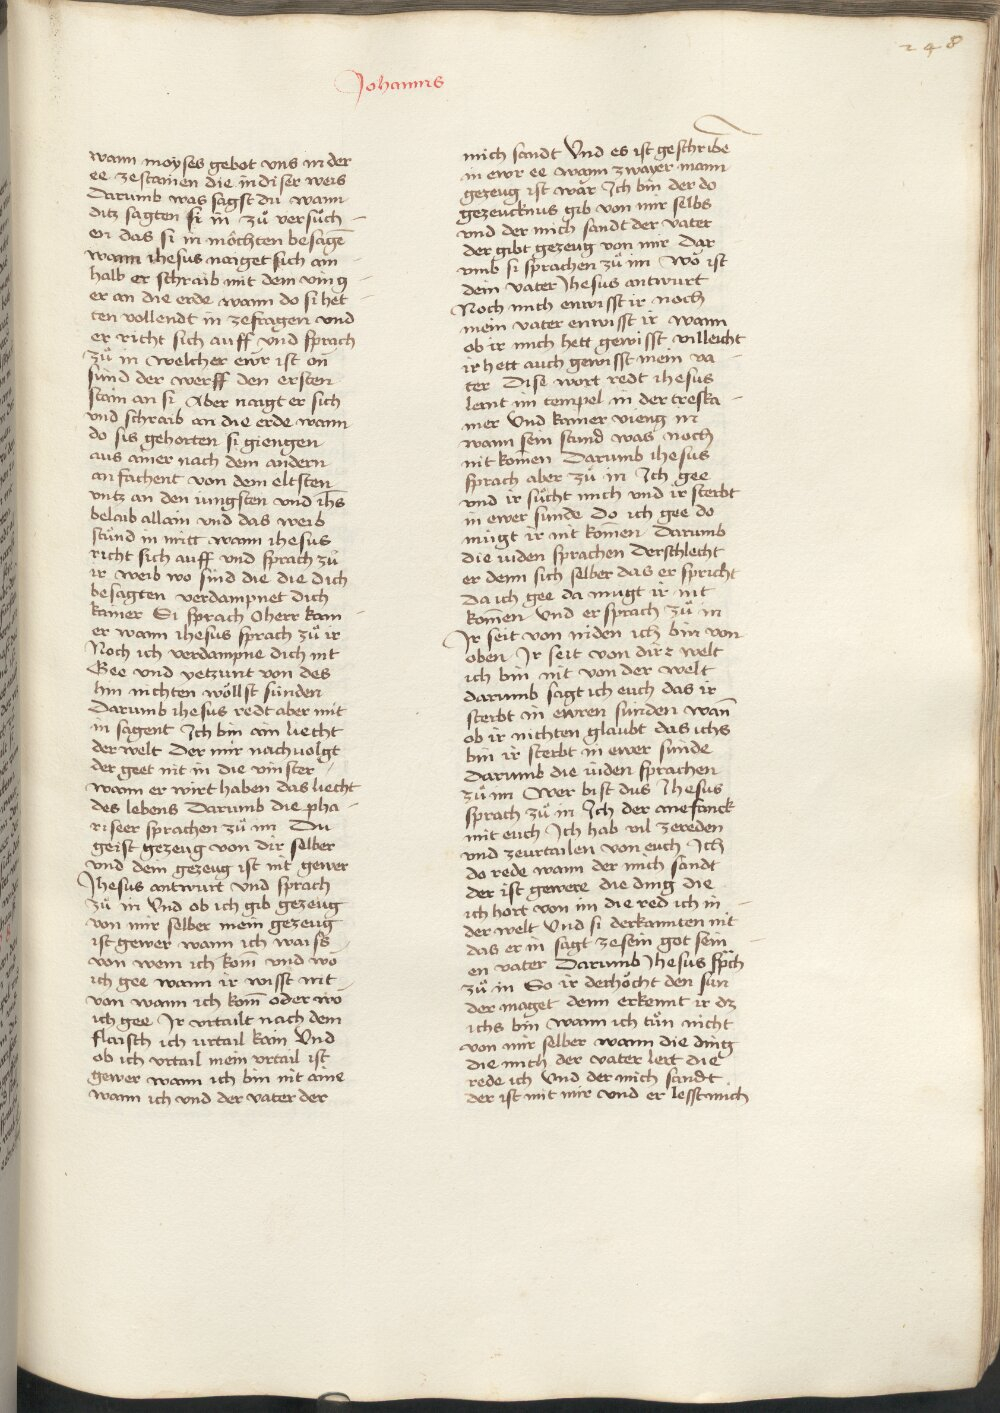 248
Johannis
wann moyses gebot vns in der
ee ze stainen die in diser weis
Darumb was sagst du wann
ditz sagten si in zů versůch
en das si in möchten besagē
wann ihesus naiget sich ain
halb er schraib mit dem ving
er an die erde wann do si het
ten vollendt in zefragen vnd
er richt sich auff vnd sprach
zů in welcher ewr ist on
sünd der werff den ersten
stain an si Aber naigt er sich
vnd schraib an die erde wann
do sis gehorten si giengen
aus ainer nach dem andern
an fachent von dem eltsten
vntz an den iungsten vnd ihs̄
belaib allain vnd das weib
stůnd in mitt wann ihesus
richt sich auff vnd sprach zů
ir weib wo sind die die dich
besagten verdampnet dich
kainer Si sprach O herr kain
er wann ihesus sprach zů ir
Noch ich verdampne dich nit
Gee vnd yetzunt von des
hin nichten wöllst sünden
Darumb ihesus redt aber mit
in sagent Ich bin ain liecht
der welt Der mir nachuolgt
der geet nit in die vinster
wann er wirt haben das liecht
des lebens Darumb die pha
riseer sprachen zů im Du
geist gezeug von dir selber
vnd dein gezeug ist nit gewer
Jhesus antwurt vnd sprach
zů in Vnd ob ich gib gezeug
von mir selber mein gezeug
ist gewer wann ich waiss
von wem ich kom̄ vnd wo
ich gee wann ir wisst nit
von wann ich kom̄ oder wo
ich gee Ir vrtailt nach dem
flaisch ich urtail kain Vnd
ob ich vrtail mein vrtail ist
gewer wann ich bin nit aine
wann ich vnd der vater der
mich sandt Vnd es ist geschribē
in ewr ee wann zwayer mann
gezeug ist war Ich bin der do
gezeucknus gib von mir selbs
vnd der mich sandt der vater
der gibt gezeug von mir Dar
vmb si sprachen zů im Wo ist
dein vater Jhesus antwurt
Noch mich enwisst ir noch
mein vater enwisst ir wann
ob ir mich hett gewisst villeicht
ir hett auch gewisst mein va
ter Dise wort redt ihesus
lernt im tempel in der treska
mer Vnd kainer vieng in
wann sein stund was noch
nit kom̄en Darumb ihesus
sprach aber zů in Ich gee
vnd ir sůcht mich vnd ir sterbt
in ewer sunde Do ich gee do
mügt ir nit kom̄en Darumb
die iuden sprachen Derschlecht
er denn sich selber das er spricht
Da ich gee da mugt ir nit
kom̄en Vnd er sprach zů in
Ir seit von niden ich bin von
oben Ir seit von dirr welt
ich bin nit von der welt
darumb sagt ich euch das ir
sterbt in ewren sunden wan̄
ob ir nichten glaubt das ichs
bin ir sterbt in ewer sünde
Darumb die iuden sprachen
zů im Wer bist dus Jhesus
sprach zů in Ich der anefanck
mit euch Ich hab vil zereden
vnd zeurtailen von euch Ich
do rede wann der mich sandt
der ist gewere die ding die
ich hort von im die red ich in
der welt Vnd si derkannten nit
das er in sagt zesein got sein
en vater Darumb Jhesus sp̄ch
zů in So ir derhöcht den sun
der maget denn erkennt ir dz
ichs bin wann ich tůn nicht
von mir selber wann die ding
die mich der vater lert die
rede ich Vnd der mich sandt
der ist mit mir vnd er lesst mich